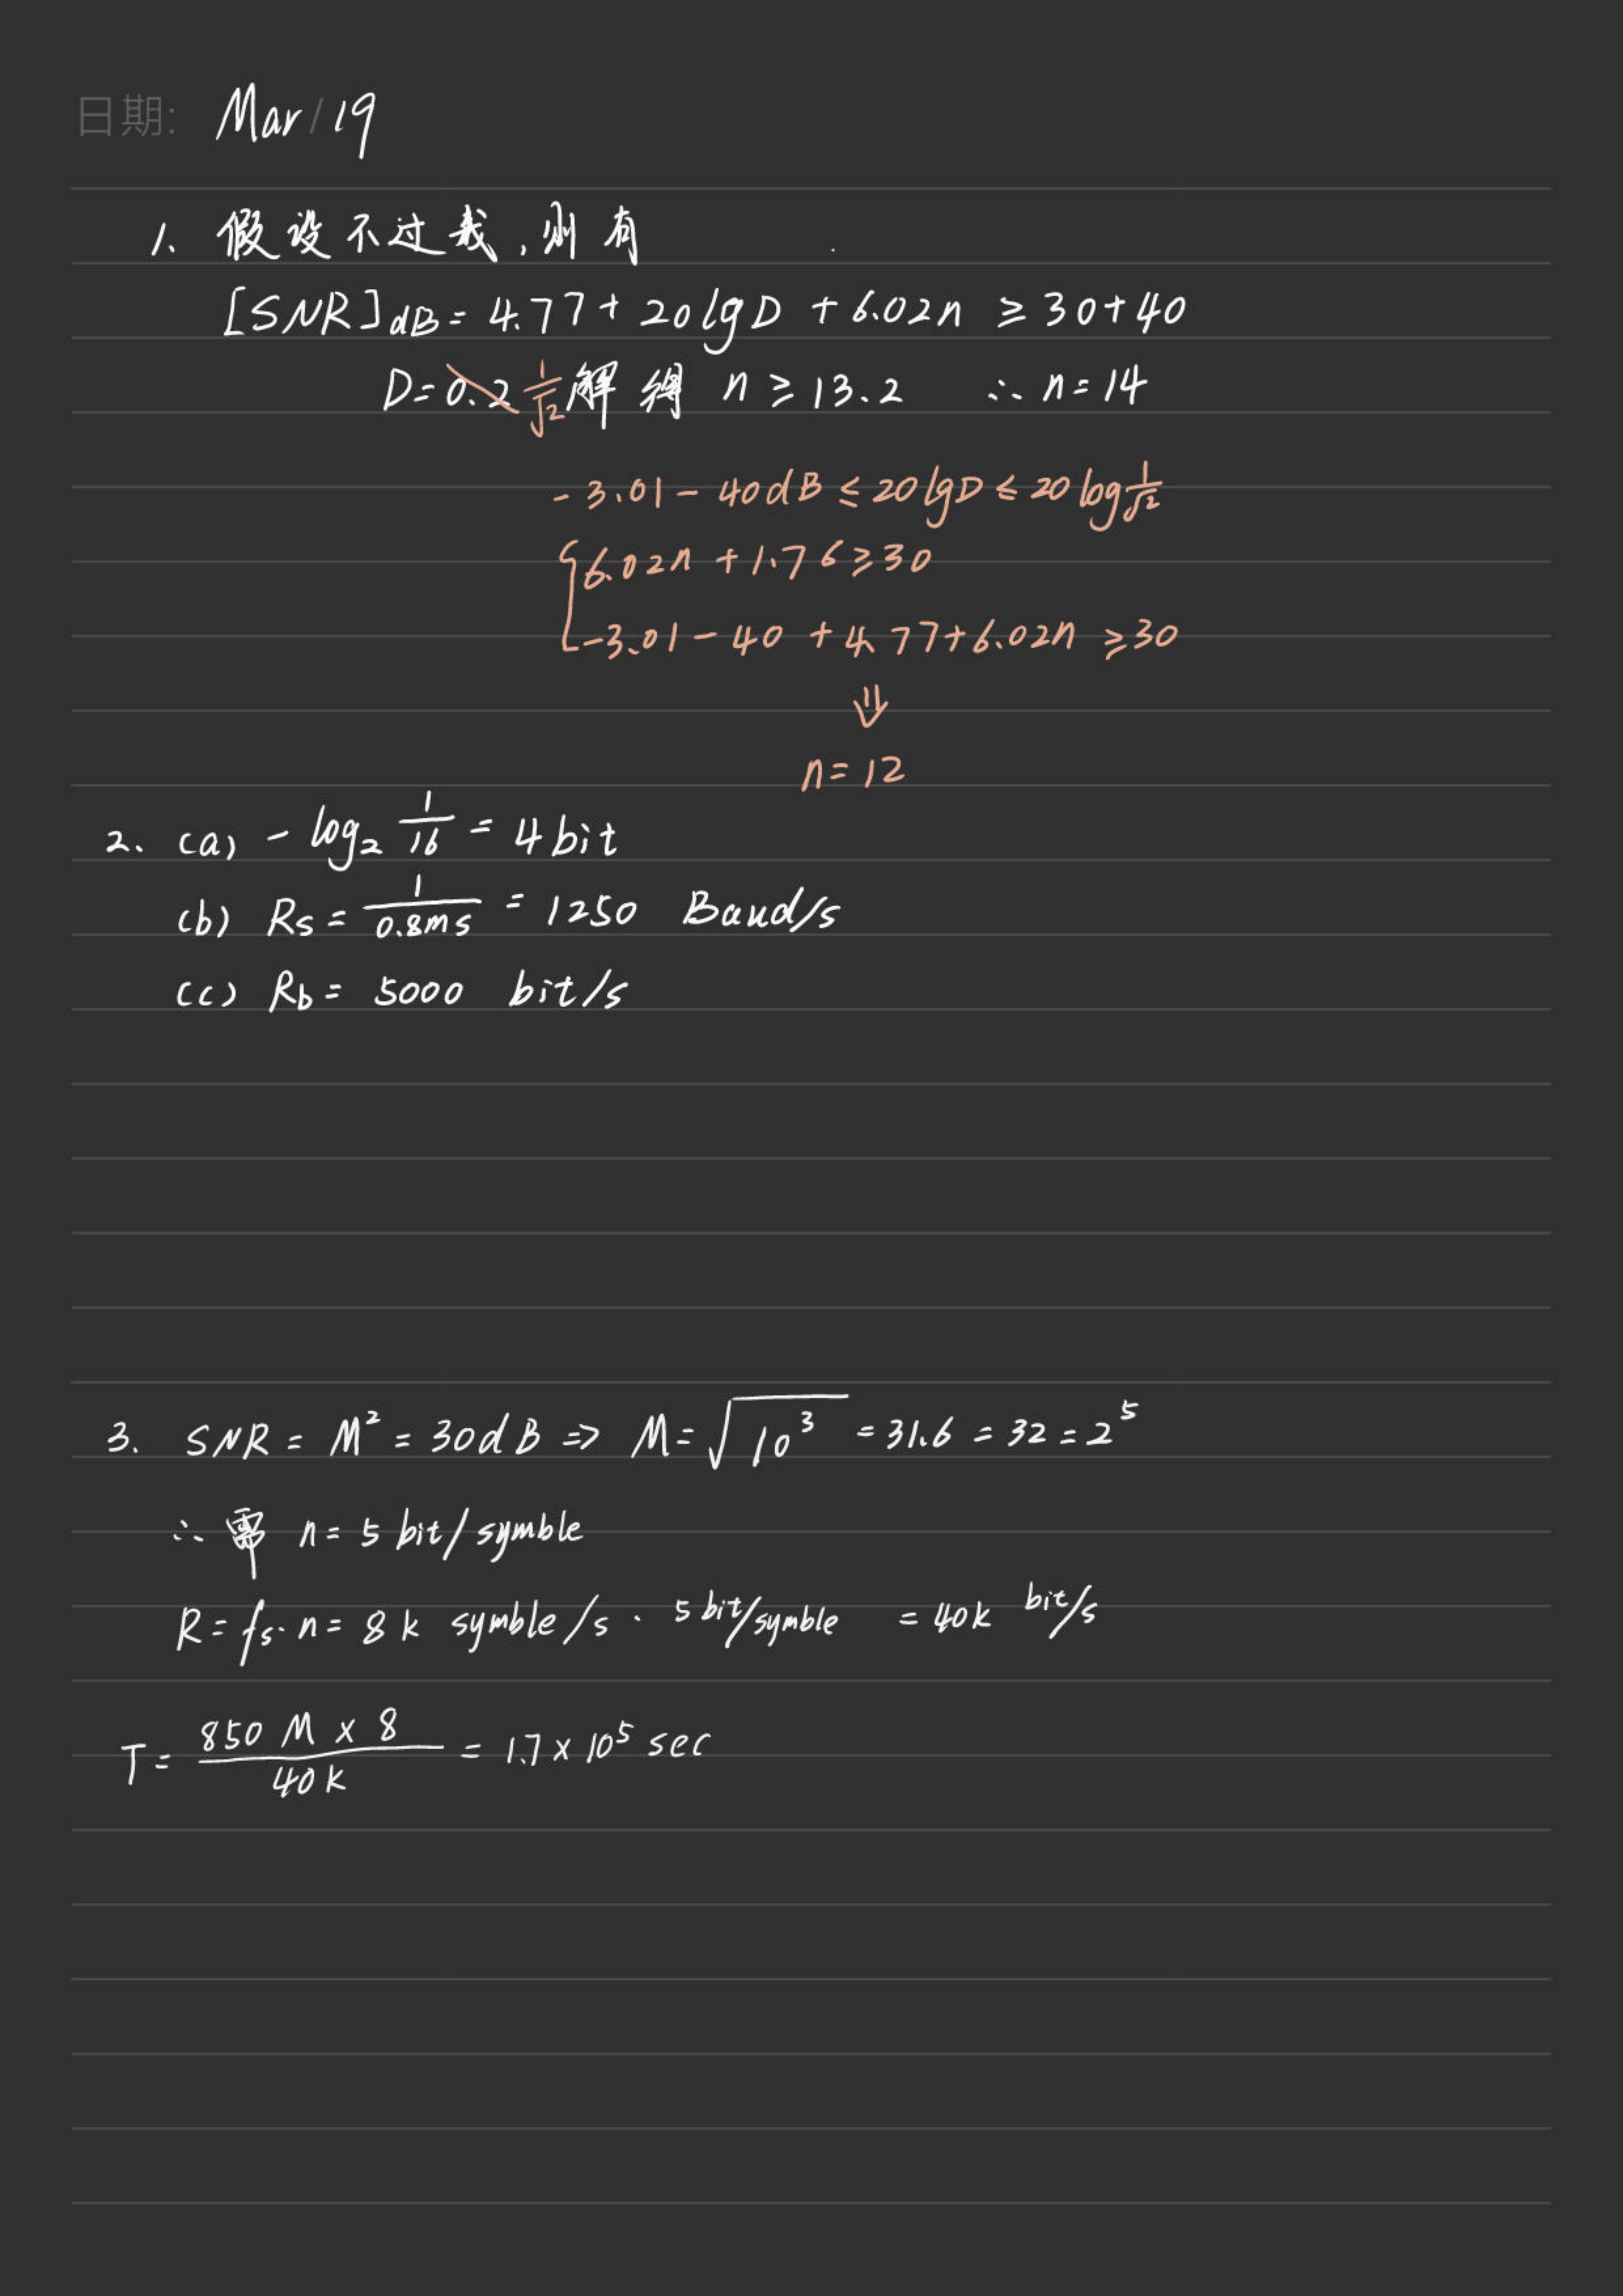 日期: Mar/19
1、假设不过载,则有
[SNR]dB = 4.77 + 20lgD + 6.02n ≥ 30+40
D = 0.2 1/√2 解得 n ≥ 13.2 ∴ n = 14
-3.01 - 40dB ≤ 20lgD ≤ 20log 1/√2
{6.02n + 1.76 ≥ 30
-3.01 - 40 + 4.77 + 6.02n ≥ 30
⇓
n = 12
2、(a) - log₂ 1/16 = 4 bit
(b) Rs = 1/0.8ms = 1250 Baud/s
(c) Rb = 5000 bit/s
3. SNR = M² = 30dB => M = √10³ = 31.6 = 32 = 2⁵
∴ 需 n = 5 bit/symble
R = fs·n = 8k symble/s · 5 bit/symble = 40k bit/s
T = 850 M × 8 / 40k = 1.7 × 10⁵ sec